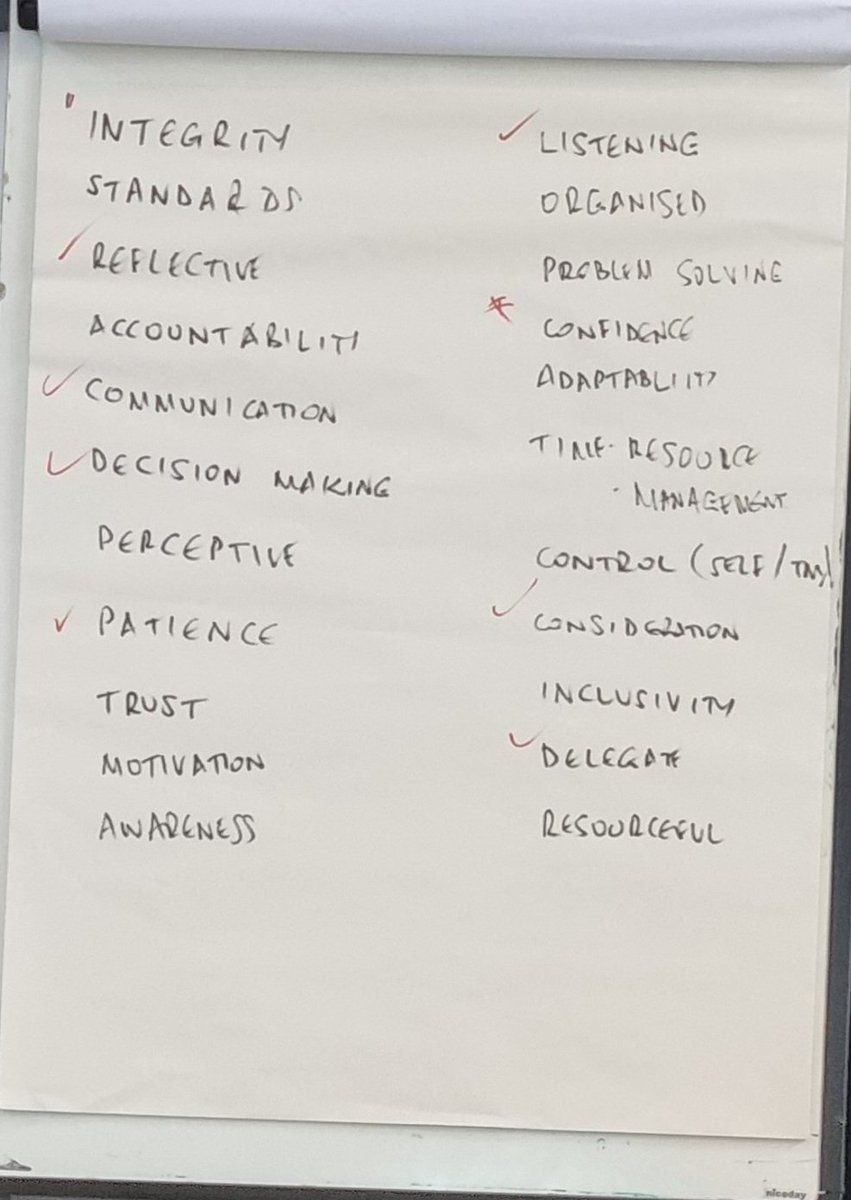 INTEGRITY
STANDARDS
REFLECTIVE
ACCOUNTABILITY
COMMUNICATION
DECISION MAKING
PERCEPTIVE
PATIENCE
TRUST
MOTIVATION
AWARENESS
LISTENING
ORGANISED
PROBLEM SOLVING
CONFIDENCE
ADAPTABLIITY
TIME · RESOURCE
· MANAGEMENT
CONTROL (SELF/TM)
CONSIDERATION
INCLUSIVITY
DELEGATE
RESOURCEFUL
niceday